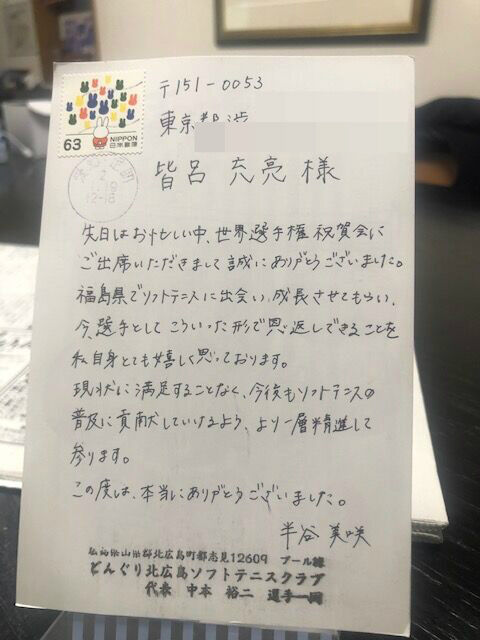 〒151-0053
東京都渋
63
NIPPON
日本郵便
2
12-18
皆呂 充亮 様
先日はお忙しい中、世界選手権祝賀会に
ご出席いただきまして誠にありがとうございました。
福島県でソフトテニスに出会い、成長させてもらい、
今、選手としてこういった形で恩返しできることを
私自身とても嬉しく思っております。
現状に満足することなく、今後もソフトテニスの
普及に貢献していけるよう、より一層精進して
参ります。
この度は、本当にありがとうございました。
半谷 美咲
広島県山県郡北広島町都志見12609
どんぐり北広島ソフトテニスクラブ
代表 中本 裕二 選手一同